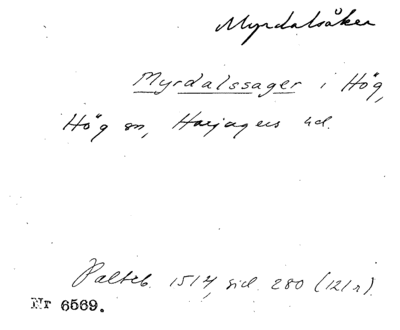 Myrdalsåker
Myrdalssager i Hög,
Hög sn, Harjagers hd.
Palteb. 1514, sid. 280 (121 r).
Nr 6569.